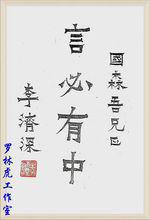 國森吾兄正
言必有中
李濟深
罗林虎工作室